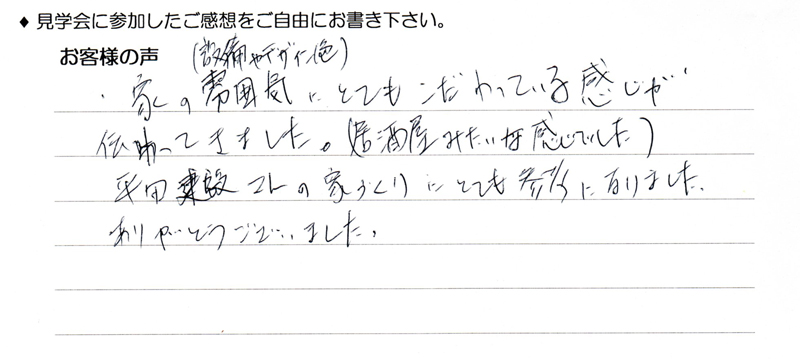 ◆ 見学会に参加したご感想をご自由にお書き下さい。
お客様の声 (設備やデザイン色)
・家の雰囲気にとてもこだわっている感じが
伝わってきました。(居酒屋みたいな感じでした)
平田建設さんの家づくりにとても参考になりました。
ありがとうございました。